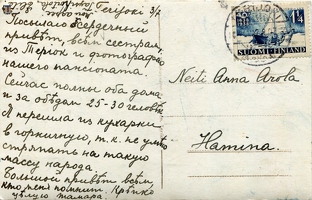 Terijoki 3/7
Посылаю сердечный
привѣт, всѣм сестрам,
из Терiок и фотографiю
нашего пансiоната.
Сейчас полны оба дома
и за обѣдом 25-30 человѣк
Я перешла из кухарки
в горничную, т.к. не умѣю
стряпать на такую
массу народа.
Большой привѣт всѣм
кто меня помнит. Крѣпко
цѣлую Тамара.
14
SUOMI-FINLAND
Neiti Anna Arola
Hamina.